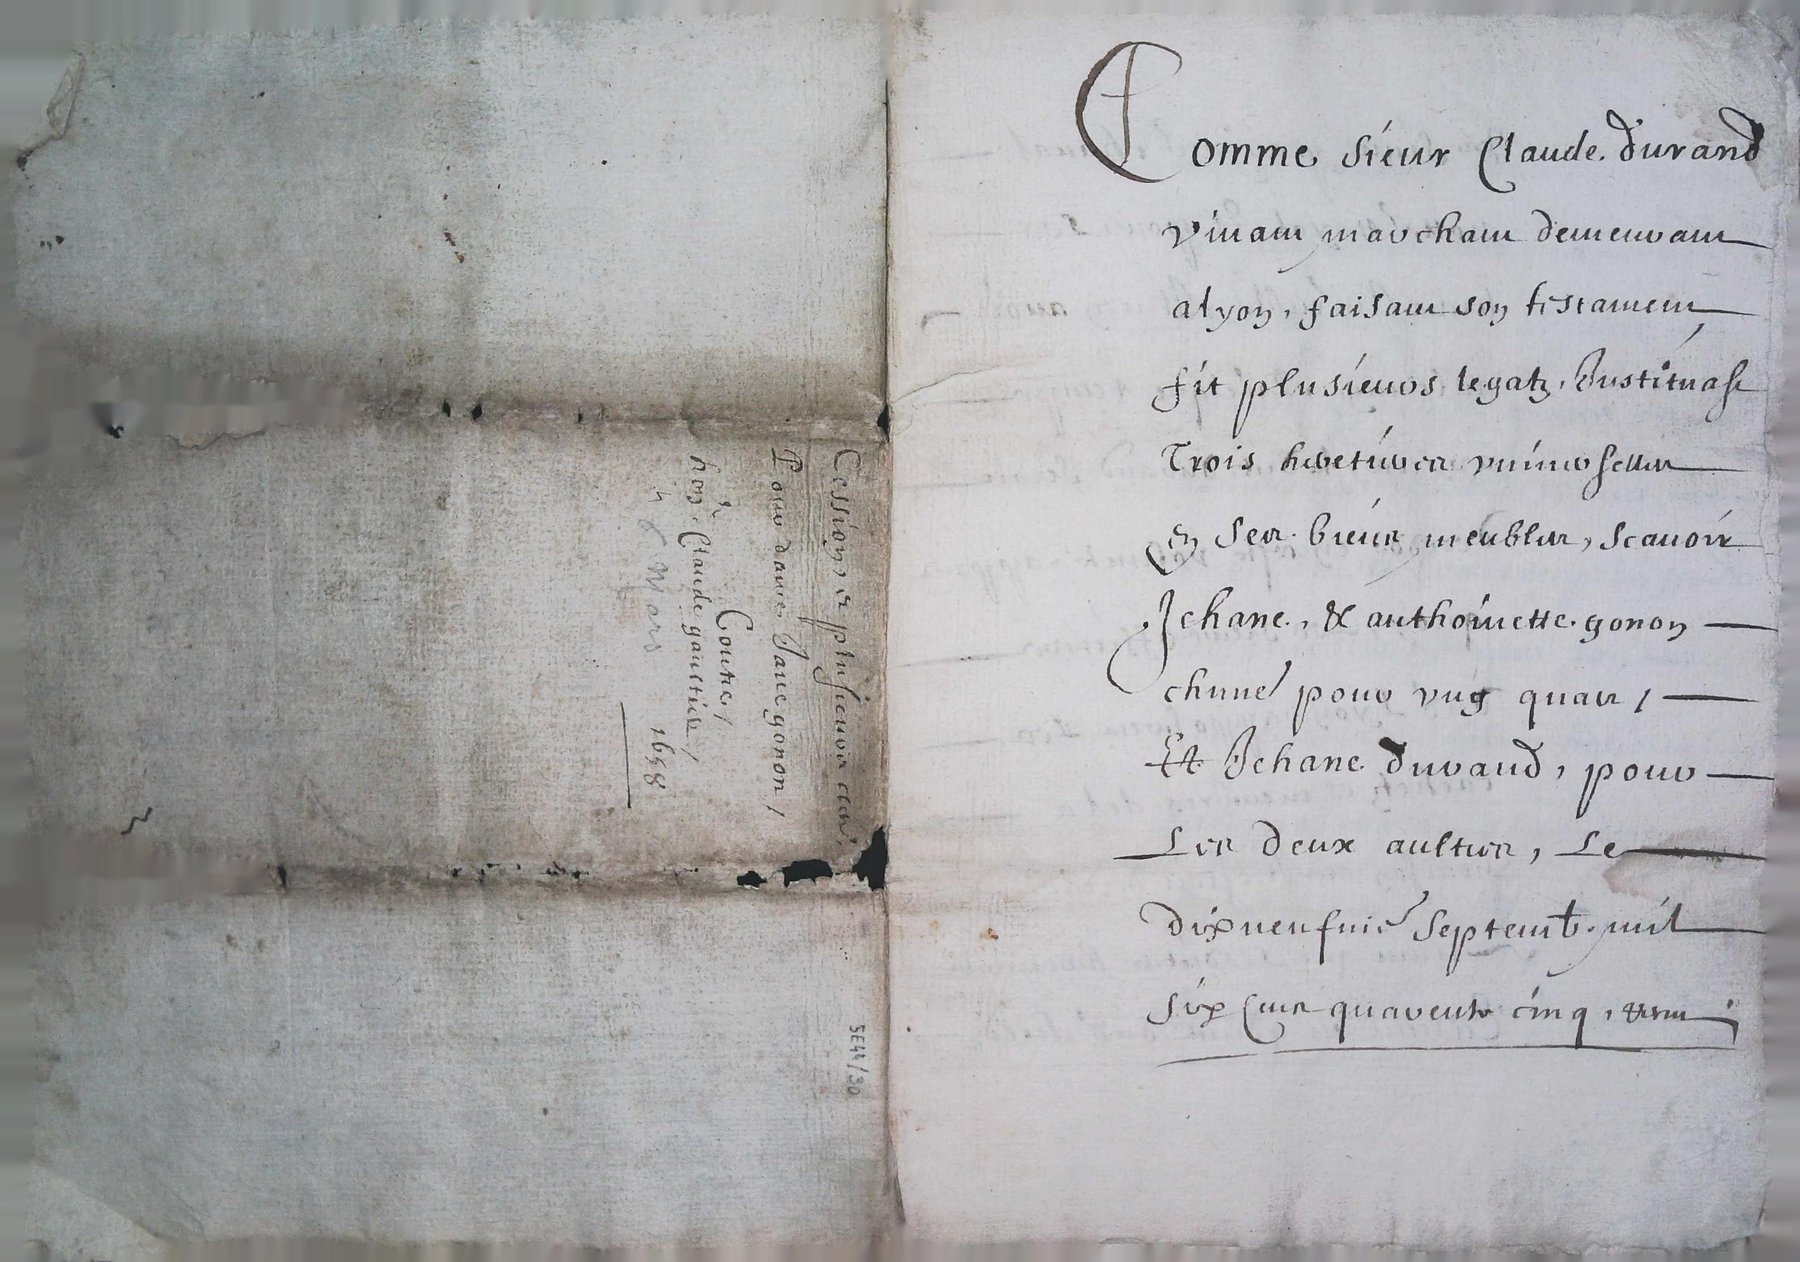 Cessions et plusieurs act.
Pour dame Jane gonon /
Contre /
hon. Claude gaultier /
4 Mars 1658
5E44/30
Comme sieur Claude durand
vivant marchant demeurant
a lyon, faisant son testament
fit plusieurs legatz, Institua ses
Trois heretieres universelles
en ses biens meubles, scavoir
Jehane, & anthoinette gonon
chune pour ung quart,
Et Jehane durand, pour
Les deux aultres, Le
dixneufvie septemb. mil
six cens quarente cinq,